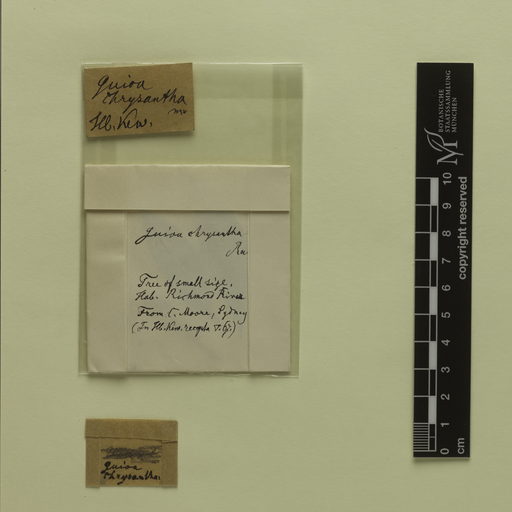 Guioa
chrysantha
Hb. Kew.
Guioa chrysantha
Tree of small size.
Hab. Richmond River
From C. Moore, Sydney
(In Hb. Kew.
Guioa
chrysantha
BOTANISCHE
STAATSSAMMLUNG
MÜNCHEN
copyright reserved
0 1 2 3 4 5 6 7 8 9 10
cm